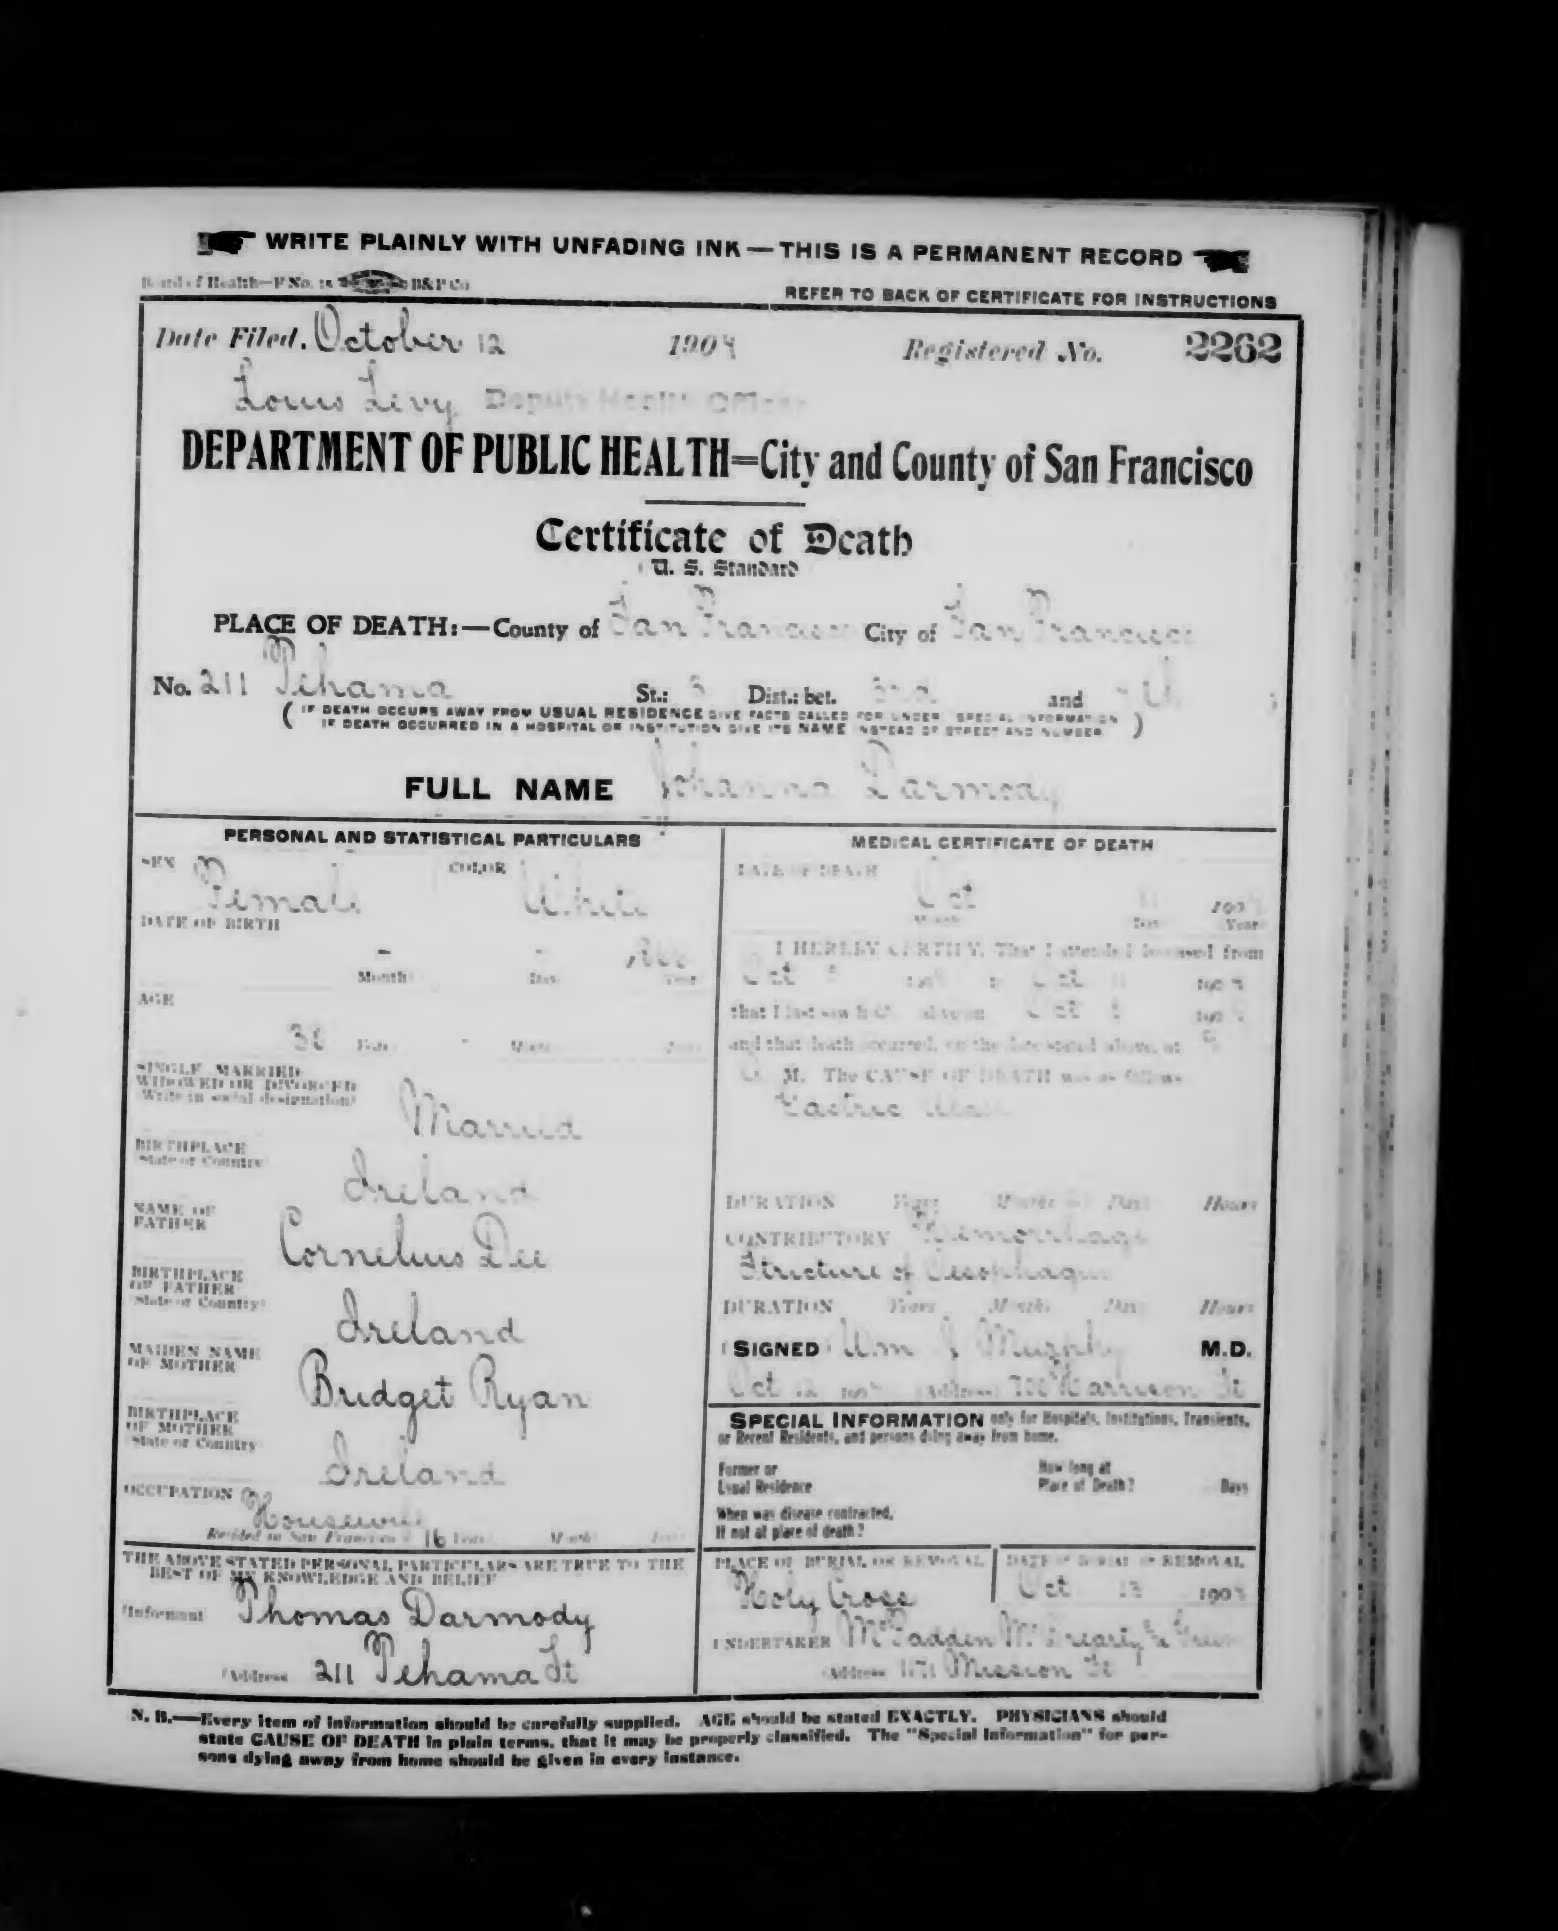 WRITE PLAINLY WITH UNFADING INK — THIS IS A PERMANENT RECORD
Board of Health—F No. B&P Co
REFER TO BACK OF CERTIFICATE FOR INSTRUCTIONS
Date Filed, October 12 1904 Registered No. 2262
Louis Levy Deputy Health Officer
DEPARTMENT OF PUBLIC HEALTH=City and County of San Francisco
Certificate of Death
U. S. Standard
PLACE OF DEATH:—County of San Francisco City of San Francisco
No. 211 Tehama St.; Dist.; bet. and
( IF DEATH OCCURS AWAY FROM USUAL RESIDENCE GIVE FACTS CALLED FOR UNDER SPECIAL INFORMATION
IF DEATH OCCURRED IN A HOSPITAL OR INSTITUTION GIVE ITS NAME INSTEAD OF STREET AND NUMBER )
FULL NAME Johanna Darmody
PERSONAL AND STATISTICAL PARTICULARS
SEX Female COLOR White
DATE OF BIRTH
Month Day Year
AGE
Years Months Days
SINGLE MARRIED
WIDOWED OR DIVORCED
(Write in social designation)
Married
BIRTHPLACE
(State or Country)
Ireland
NAME OF
FATHER
Cornelius Dee
BIRTHPLACE
OF FATHER
(State or Country)
Ireland
MAIDEN NAME
OF MOTHER
Bridget Ryan
BIRTHPLACE
OF MOTHER
(State or Country)
Ireland
OCCUPATION Housewife
Resided in San Francisco 16 Years Months Days
THE ABOVE STATED PERSONAL PARTICULARS ARE TRUE TO THE
BEST OF MY KNOWLEDGE AND BELIEF
(Informant Thomas Darmody
(Address 211 Tehama St
MEDICAL CERTIFICATE OF DEATH
DATE OF DEATH
Oct 190
Month Day Year
I HEREBY CERTIFY, That I attended deceased from
Oct to Oct 190
that I last saw h alive on Oct 190
and that death occurred, on the date stated above, at
M. The CAUSE OF DEATH was as follows
Gastric Ulcer
DURATION Years Months Days Hours
CONTRIBUTORY Hemorrhage
Stricture of Oesophagus
DURATION Years Months Days Hours
(SIGNED) Wm J Murphy M.D.
Oct 12 190 (Address) Harrison St
SPECIAL INFORMATION only for Hospitals, Institutions, Transients,
or Recent Residents, and persons dying away from home.
Former or
Usual Residence
How long at
Place of Death? Days
When was disease contracted,
If not at place of death?
PLACE OF BURIAL OR REMOVAL
Holy Cross
DATE of BURIAL or REMOVAL
Oct 13 190
UNDERTAKER McFadden McBrearty & Green
(Address 1171 Mission St
N. B.—Every item of information should be carefully supplied. AGE should be stated EXACTLY. PHYSICIANS should
state CAUSE OF DEATH in plain terms, that it may be properly classified. The "Special Information" for per-
sons dying away from home should be given in every instance.